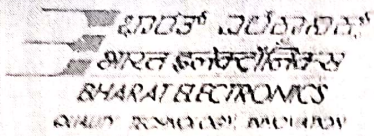 ಭಾರತ್ ಎಲೆಕ್ಟ್ರಾನಿಕ್ಸ್
भारत इलेक्ट्रॉनिक्स
BHARAT ELECTRONICS
QUALITY TECHNOLOGY INNOVATION